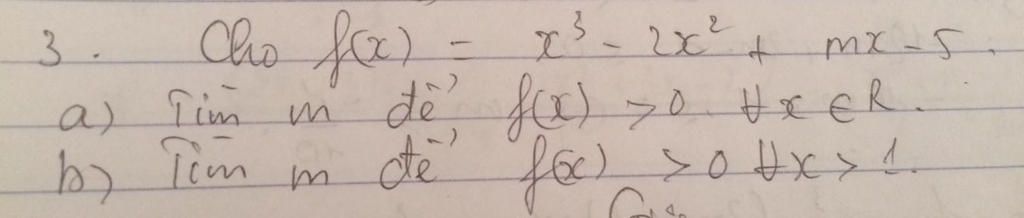 3. Cho f(x) = x³ - 2x² + mx - 5.
a) Tìm m để f(x) > 0 ∀x ∈ R.
b) Tìm m để f(x) > 0 ∀x > 1.